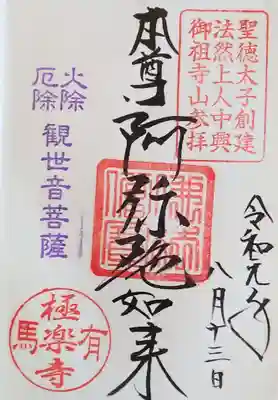 聖徳太子創建
法然上人中興
御祖寺山参拝
本尊阿弥陀如来
令和元年
八月十三日
火除
厄除
観世音菩薩
有馬
極楽寺